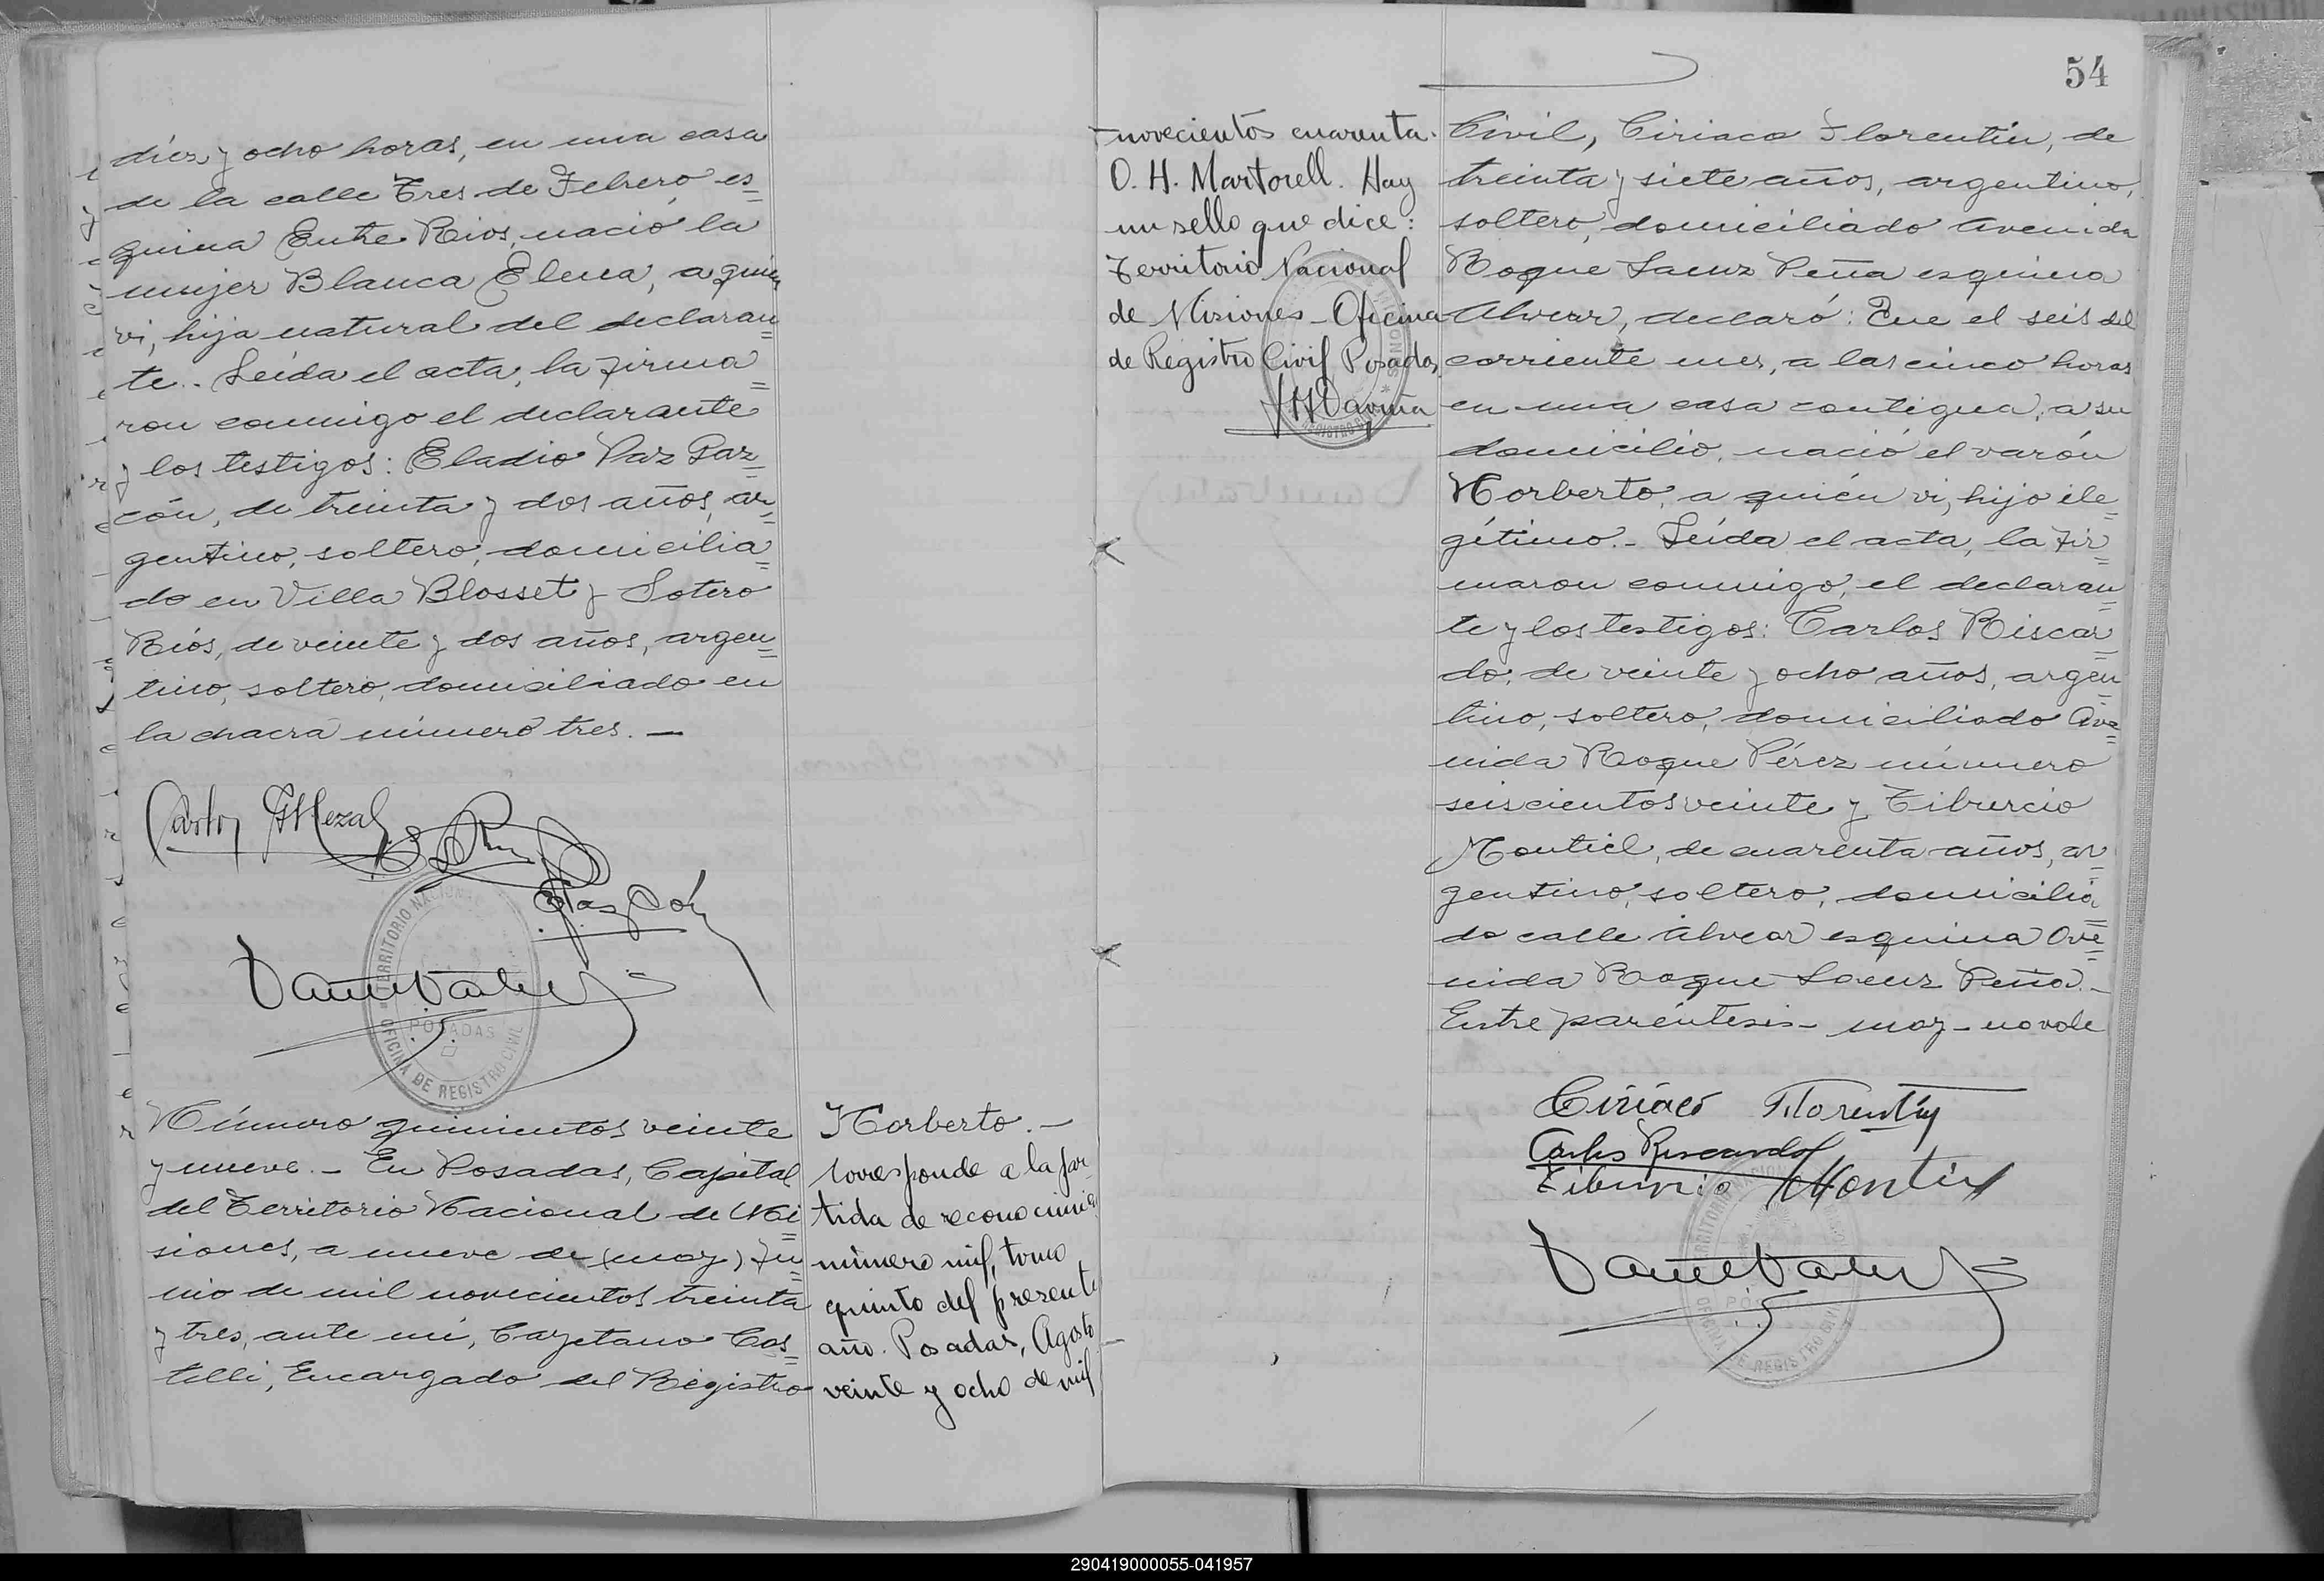 diez y ocho horas, en una casa
de la calle Tres de Febrero es=
quina Entre Rios, nació la
mujer Blanca Elena, a quien
vi, hija natural del declaran=
te.- Leída el acta, la firma=
ron conmigo el declarante
y los testigos: Eladio Paz Gar=
cón, de treinta y dos años, ar=
gentino, soltero, domicilia=
do en Villa Blosset y Sotero
Ríos, de veinte y dos años, argen=
tino, soltero, domiciliado en
la chacra número tres. —
TERRITORIO NACIONAL
POSADAS
OFICINA DE REGISTRO CIVIL
Número quinientos veinte
y nueve.- En Posadas, Capital
del Territorio Nacional de Mi=
siones, a nueve de (may) Ju=
nio de mil novecientos treinta
y tres, ante mí, Cayetano Cas=
telli, Encargado del Registro
Norberto.-
Corresponde a la par
tida de reconocimien
número mil, tomo
quinto del presente
año. Posadas, Agosto
veinte y ocho de mil
54
novecientos cuarenta.
O. H. Martorell. Hay
un sello que dice:
Territorio Nacional
de Misiones - Oficina
de Registro Civil Posadas
Civil, Ciriaco Florentín, de
treinta y siete años, argentino,
soltero, domiciliado Avenida
Roque Saenz Peña esquina
Alvear, declaró: Que el seis del
corriente mes, a las cinco horas
en una casa contigua, a su
domicilio, nació el varón
Norberto, a quién vi, hijo ile=
gítimo.- Leída el acta, la fir=
maron conmigo, el declaran=
te y los testigos: Carlos Riscar=
do, de veinte y ocho años, argen=
tino, soltero, domiciliado Ave=
nida Roque Pérez número
seiscientos veinte y Tiburcio
Montiel, de cuarenta años, ar=
gentino, soltero, domicilia=
do calle Alvear esquina Ave=
nida Roque Saenz Peña.-
Entre paréntesis - may - no vale
Ciriaco Florentín
Carlos Riscardo
Tiburcio Montiel
290419000055-041957